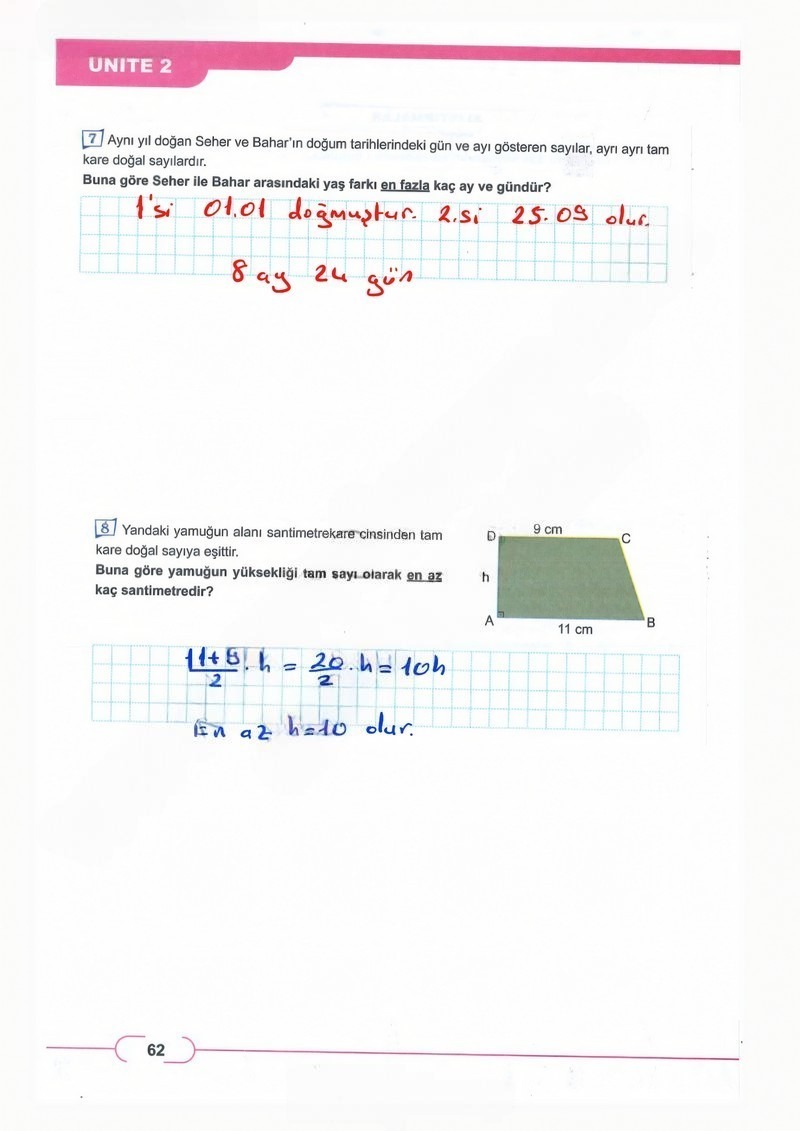 UNITE 2
7 Aynı yıl doğan Seher ve Bahar'ın doğum tarihlerindeki gün ve ayı gösteren sayılar, ayrı ayrı tam
kare doğal sayılardır.
Buna göre Seher ile Bahar arasındaki yaş farkı en fazla kaç ay ve gündür?
1'si 01.01 doğmuştur. 2.si 25.09 olur.
8 ay 24 gün
8 Yandaki yamuğun alanı santimetrekare cinsinden tam
kare doğal sayıya eşittir.
Buna göre yamuğun yüksekliği tam sayı olarak en az
kaç santimetredir?
D 9 cm C
h
A 11 cm B
11+9/2 . h = 20/2 . h = 10h
En az h=10 olur.
62